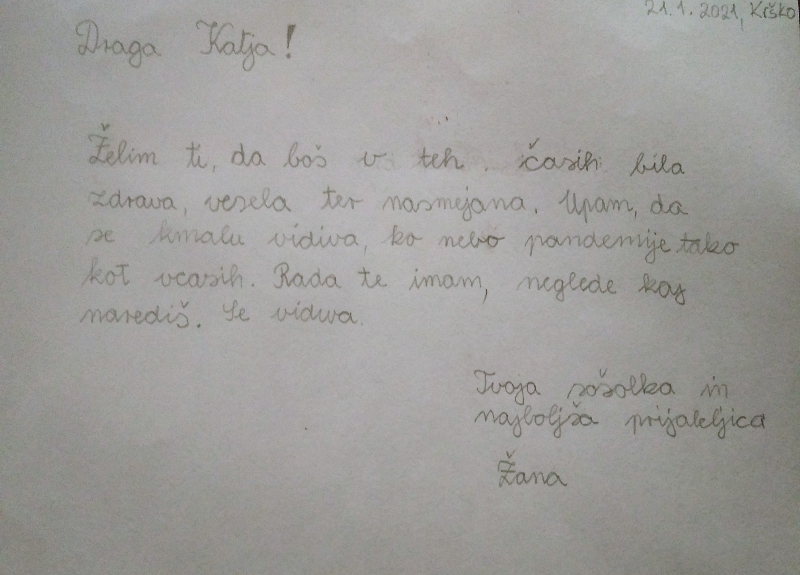 21.1.2021, Krško
Draga Katja!
Želim ti, da boš v teh časih bila
zdrava, vesela ter nasmejana. Upam, da
se kmalu vidiva, ko nebo pandemije tako
kot vcasih. Rada te imam, neglede kaj
narediš. Se vidiva.
Tvoja sošolka in
najboljša prijateljica
Žana